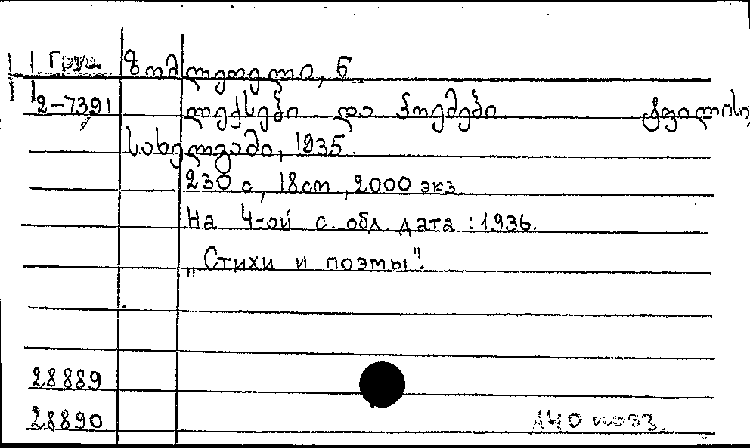 Груз. ზომლეთელი, ნ
2-7391 ლექსები და პოემები ტფილისი
სახელგამი, 1935.
230 с, 18cm, 2000 экз.
На 4-ой с. обл. дата: 1936.
„Стихи и поэмы".
28889
28890